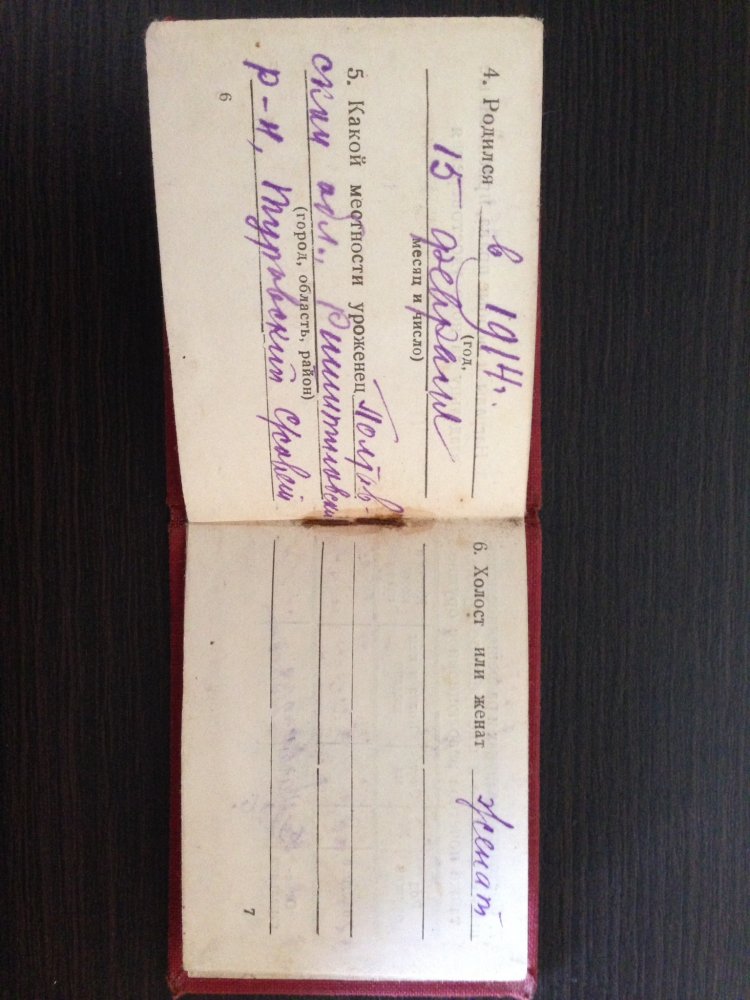 4. Родился в 1914 г.
(год,
15 февраля
месяц и число)
5. Какой местности уроженец Полтав-
ской обл., Решитиловский
(город, область, район)
р-н,
6
6. Холост или женат женат
7